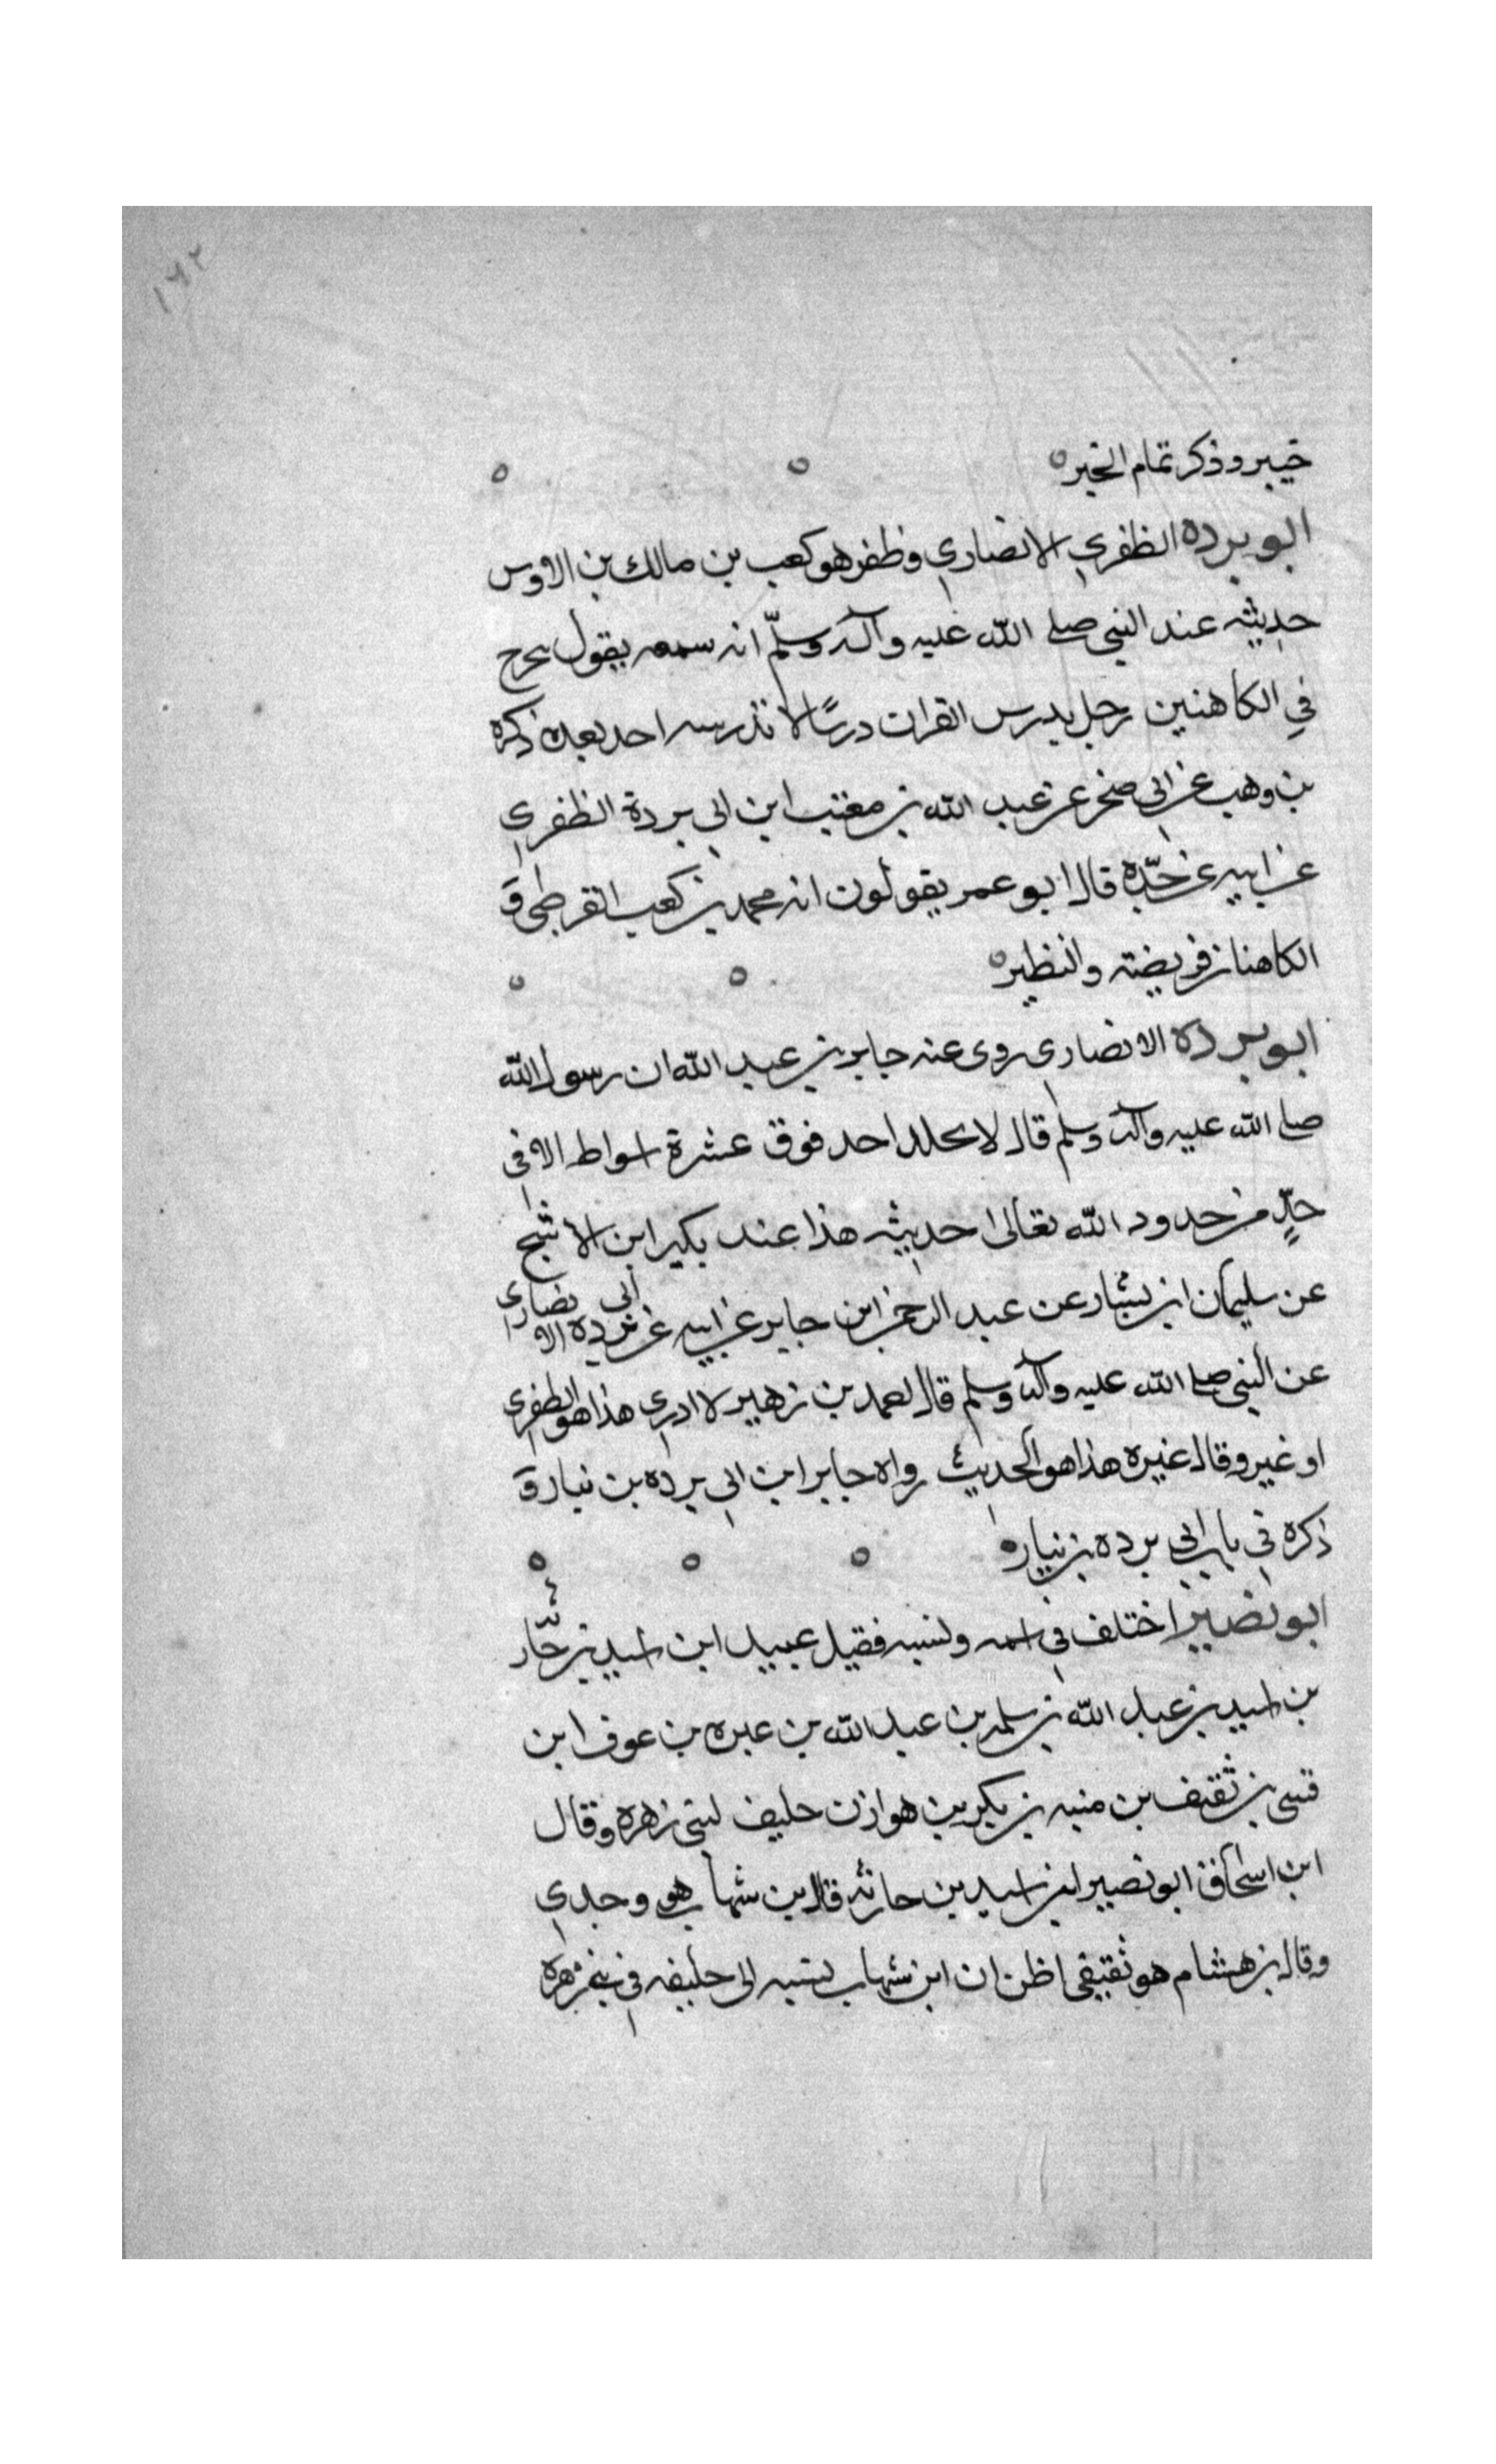 ١٦٢
خيبر وذكر تمام الخبر
ابو بردة الظفري الانصاري وظفر هو كعب بن مالك بن الاوس
حديثه عند النبي صلى الله عليه وآله وسلّم انه سمعه يقول يخرج
في الكاهنين رجل يدرس القران درسًا لا تدرسه احد بعده ذكره
بن وهب عن ابي صخر عن عبد الله بن مغتب ابن ابي بردة الظفري
عن ابيه عن جدّه قال ابو عمر يقولون انه محمد بن كعب القرظي و
الكاهنان قريضة والنظير
ابو بردة الانصاري روى عنه جابر بن عبد الله ان رسول الله
صلى الله عليه وآله وسلم قال لا يجلد احد فوق عشرة اسواط الا في
حدٍّ من حدود الله تعالى احديثه هذا عند بكير ابن الاشج
عن سليمان ابن بشار عن عبد الرحمن ابن جابر عن ابيه عن ابي بردة الانصاري
عن النبي صلى الله عليه وآله وسلم قال احمد بن زهير لا ادري هذا هو الظفري
او غير وقال غيره هذا هو الحديث رواه جابر ابن ابي برده بن نيار و
ذكره في باب ابي برده بن نيار
ابو نصير اختلف في اسمه ونسبه فقيل عبيد ابن اسيد بن
بن اسيد بن عبد الله بن سلمه بن عبد الله بن عبره بن عوف ابن
قسي بن ثقيف بن منبه بن بكر بن هوازن حليف لبني زهره وقال
ابن اسحاق ابو نصير ابن اسيد بن حارثه قال بن شهاب هو وجدي
وقال بن هشام هو ثقيفي اظن ان ابن شهاب نسبه الى حليفه في بني زهرة